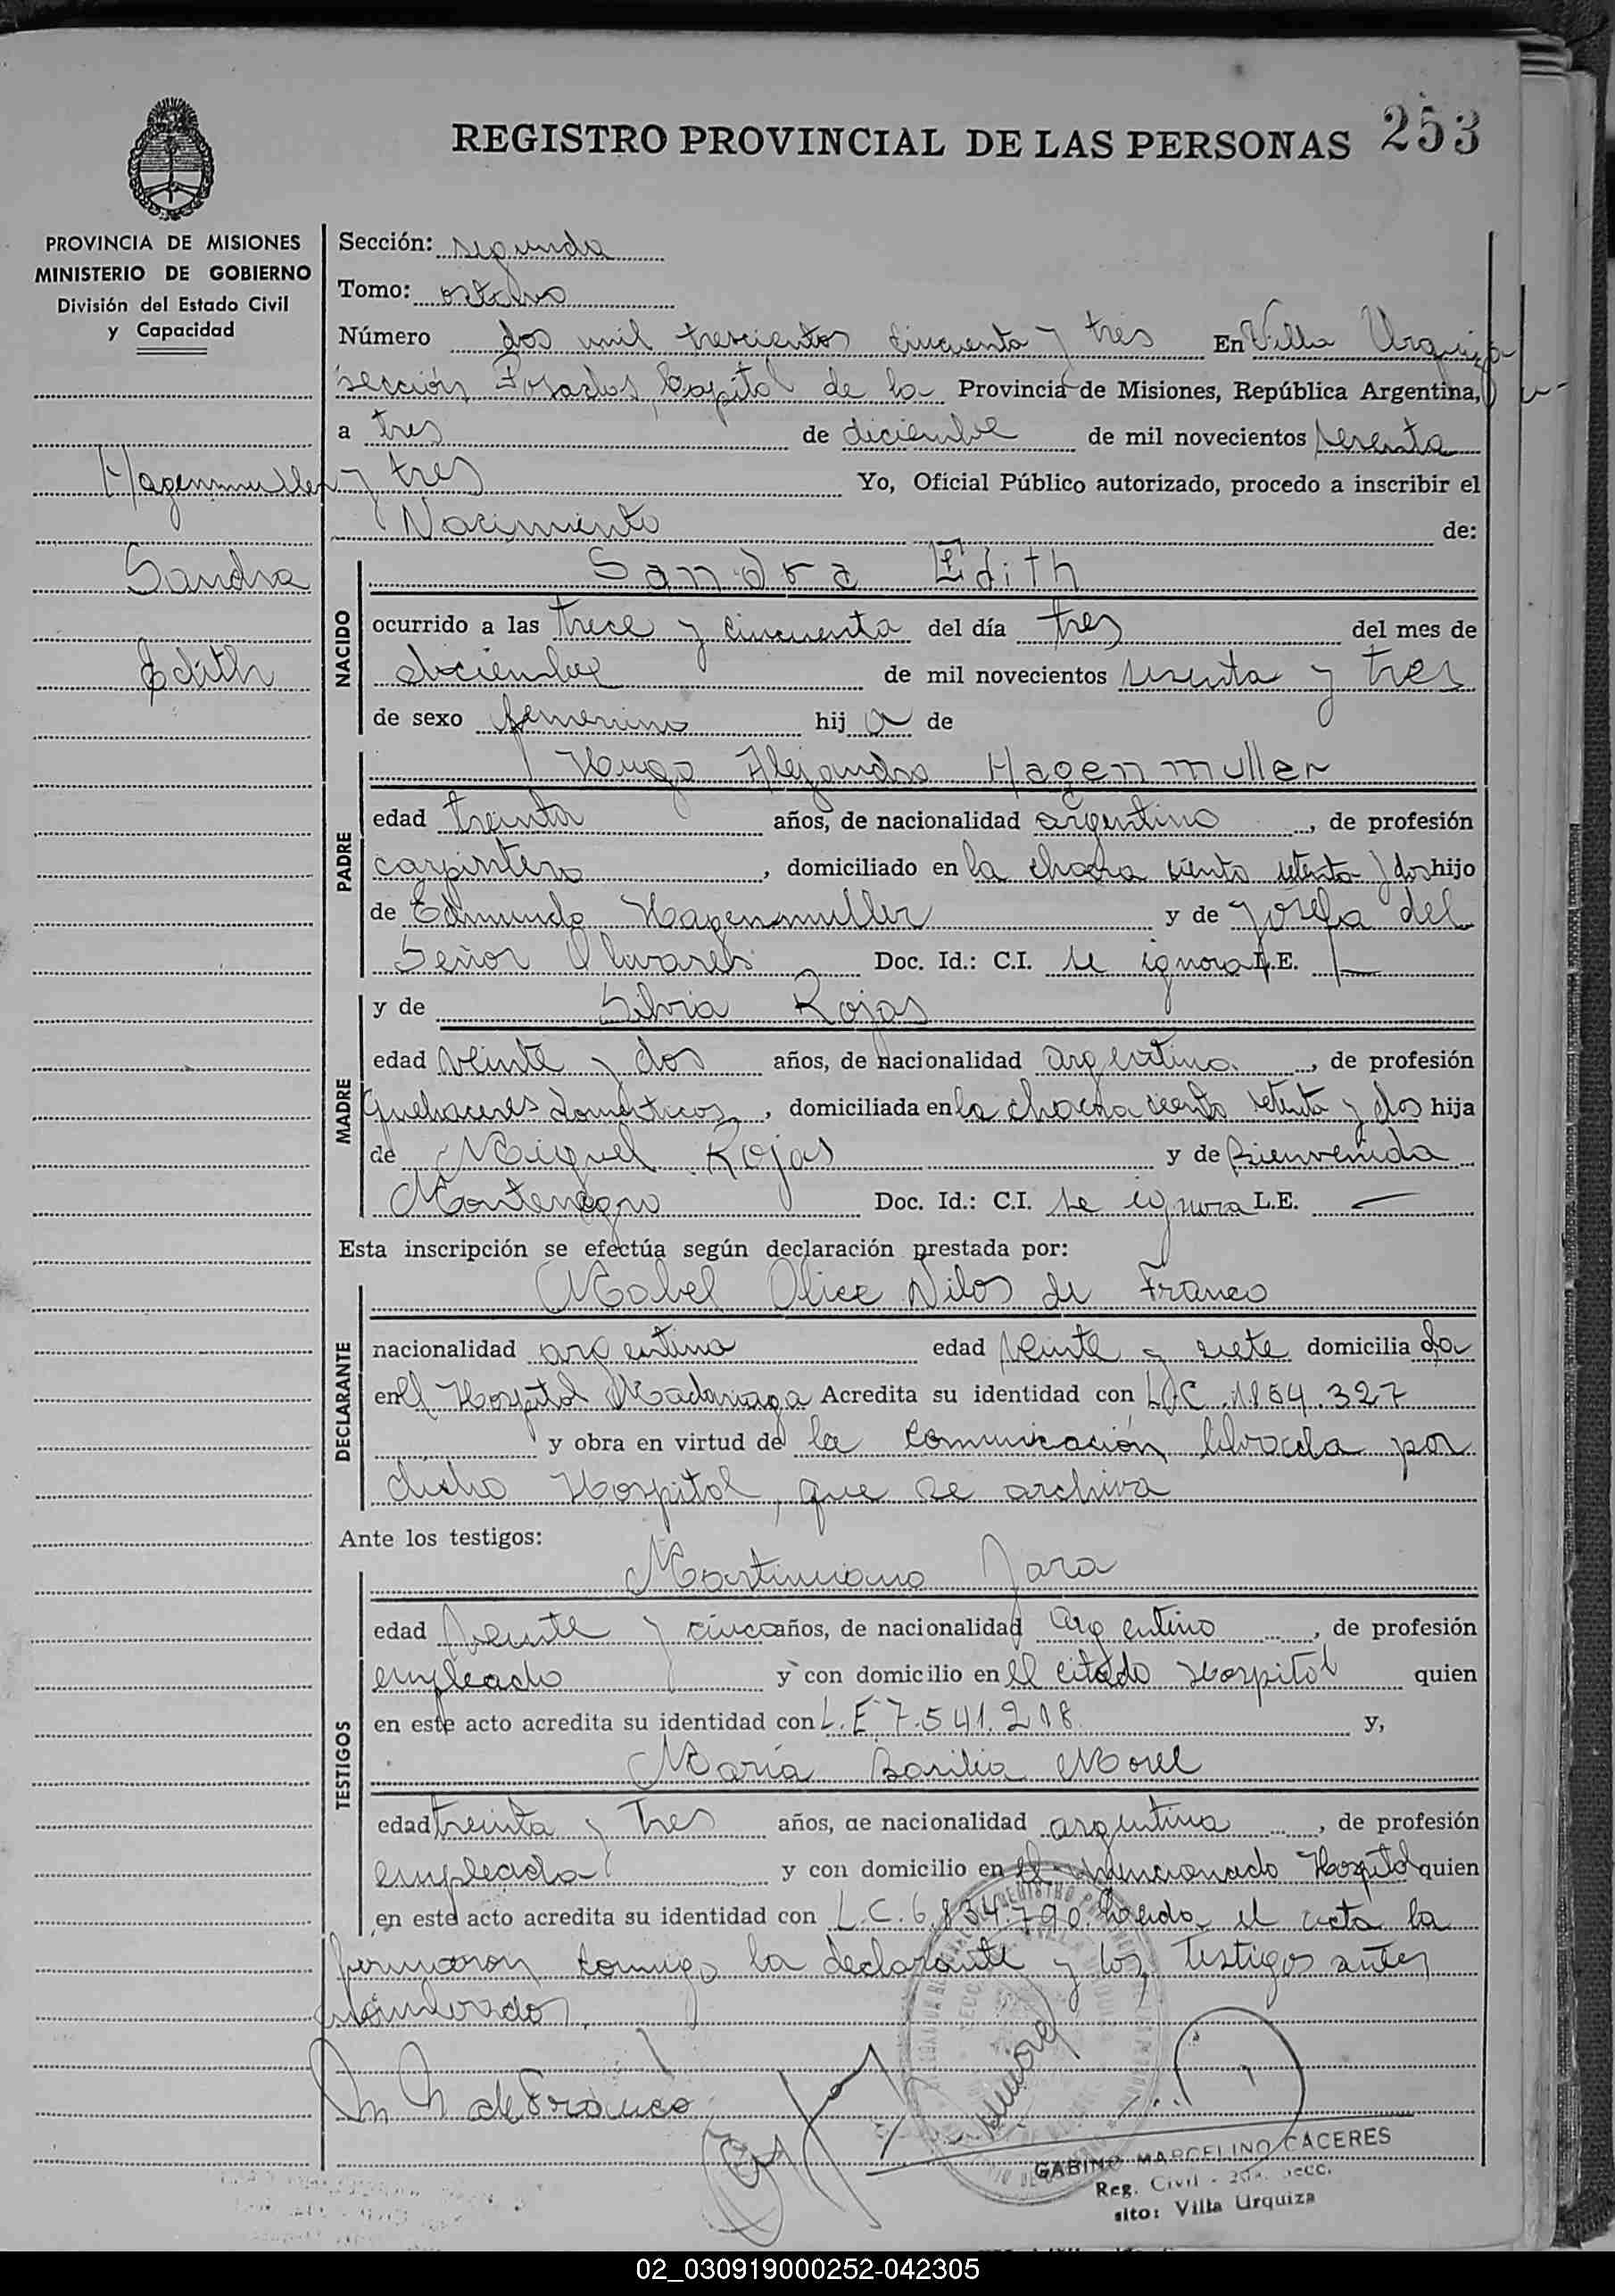 REGISTRO PROVINCIAL DE LAS PERSONAS 253
PROVINCIA DE MISIONES
MINISTERIO DE GOBIERNO
División del Estado Civil
y Capacidad
Hagenmuller
Sandra
Edith
Sección: segunda
Tomo: octavo
Número dos mil trescientos cincuenta y tres En Villa Urquiza
sección Posadas, Capital de la Provincia de Misiones, República Argentina,
a tres de diciembre de mil novecientos sesenta
y tres Yo, Oficial Público autorizado, procedo a inscribir el
Nacimiento de:
NACIDO
Sandra Edith
ocurrido a las trece y cincuenta del día tres del mes de
diciembre de mil novecientos sesenta y tres
de sexo femenino hij a de
PADRE
Hugo Alejandro Hagenmuller
edad treinta años, de nacionalidad argentino, de profesión
carpintero, domiciliado en la chacra ciento setenta y dos hijo
de Edmundo Hagenmuller y de Josefa del
Señor Olivares Doc. Id.: C.I. se ignora L.E. —
MADRE
y de Silvia Rojas
edad veinte y dos años, de nacionalidad argentina, de profesión
quehaceres domésticos, domiciliada en la chacra ciento setenta y dos hija
de Miguel Rojas y de Bienvenida
Montenegro Doc. Id.: C.I. se ignora L.E. —
Esta inscripción se efectúa según declaración prestada por:
DECLARANTE
Mabel Olice Nilos de Franco
nacionalidad argentina edad veinte y siete domicilia da
en el Hospital Madariaga Acredita su identidad con L.C. 1.854.327
y obra en virtud de la comunicación librada por
dicho Hospital, que se archiva
Ante los testigos:
TESTIGOS
Martiniano Jara
edad veinte y cinco años, de nacionalidad argentino, de profesión
empleado y con domicilio en el citado Hospital quien
en este acto acredita su identidad con L.E. 7.541.218 y,
María Basilia Morel
edad treinta y tres años, de nacionalidad argentina, de profesión
empleada y con domicilio en el mencionado Hospital quien
en este acto acredita su identidad con L.C. 6.834.790. Leída el acta la
firmaron conmigo la declarante y los testigos antes
nombrados.
M N de Franco
GABINO MARCELINO CACERES
Reg. Civil - 2da. Secc.
sito: Villa Urquiza
02_030919000252-042305